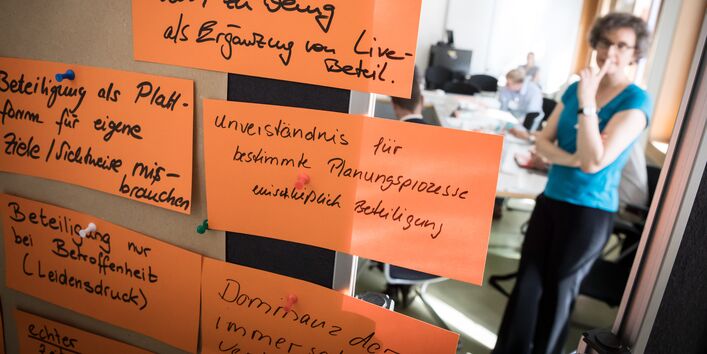 als Ergänzung von Live-
Beteil.
Beteiligung als Platt-
form für eigene
Ziele/Sichtweise miß-
brauchen
unverständnis für
bestimmte Planungsprozesse
einschließlich Beteiligung
Beteiligung nur
bei Betroffenheit
(Leidensdruck)
Dominanz der
immer
echter